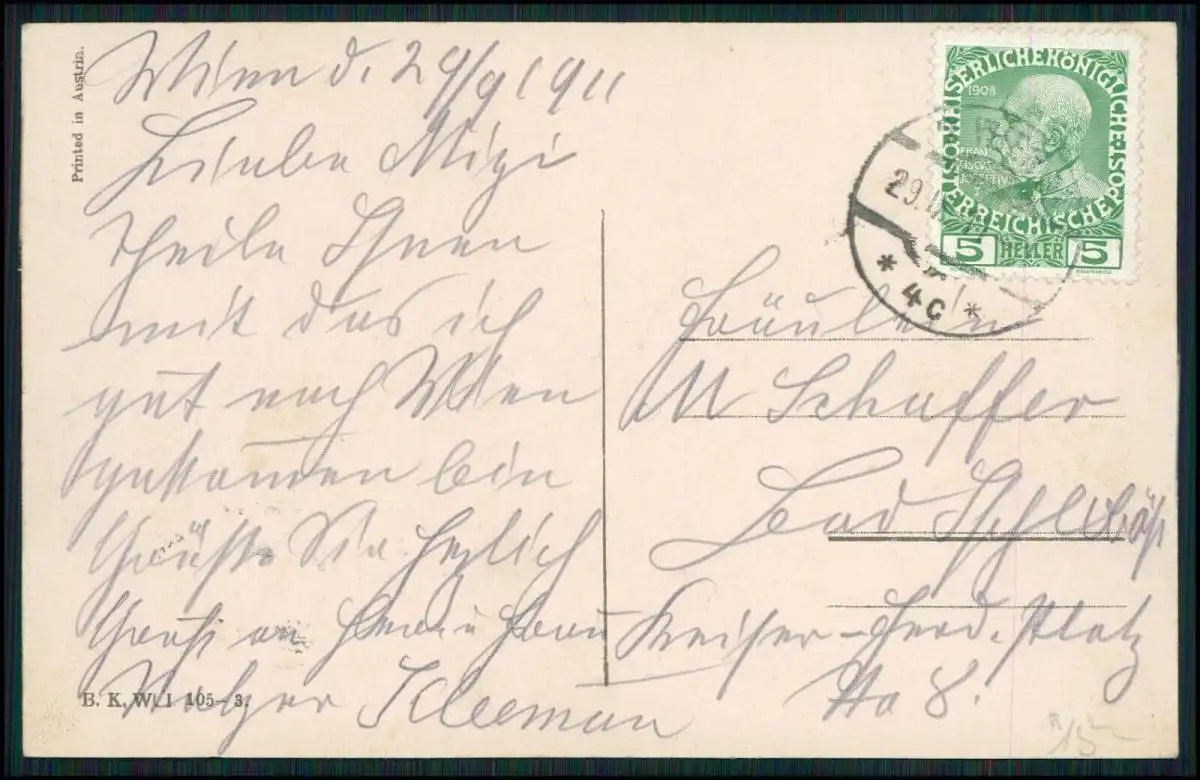 Printed in Austria.
Wien d. 29/9 1911
Liebe Mizi
theile Ihnen
mit das ich
gut nach Wien
gekom̅en bin
Grüßt Sie herzlich
Gruß an Herr u Frau
Kleeman
B. K. W. I 105–3.
KAISERLICHE KÖNIGLICHE ÖSTERREICHISCHE POST
1908
FRAN
CISCVS
JOSEPHVS
I
5 HELLER 5
29.
* 4c *
Fräulein
M Schaffer
Bad Ischl
Kaiser-Ferd. Platz
No 8.
15